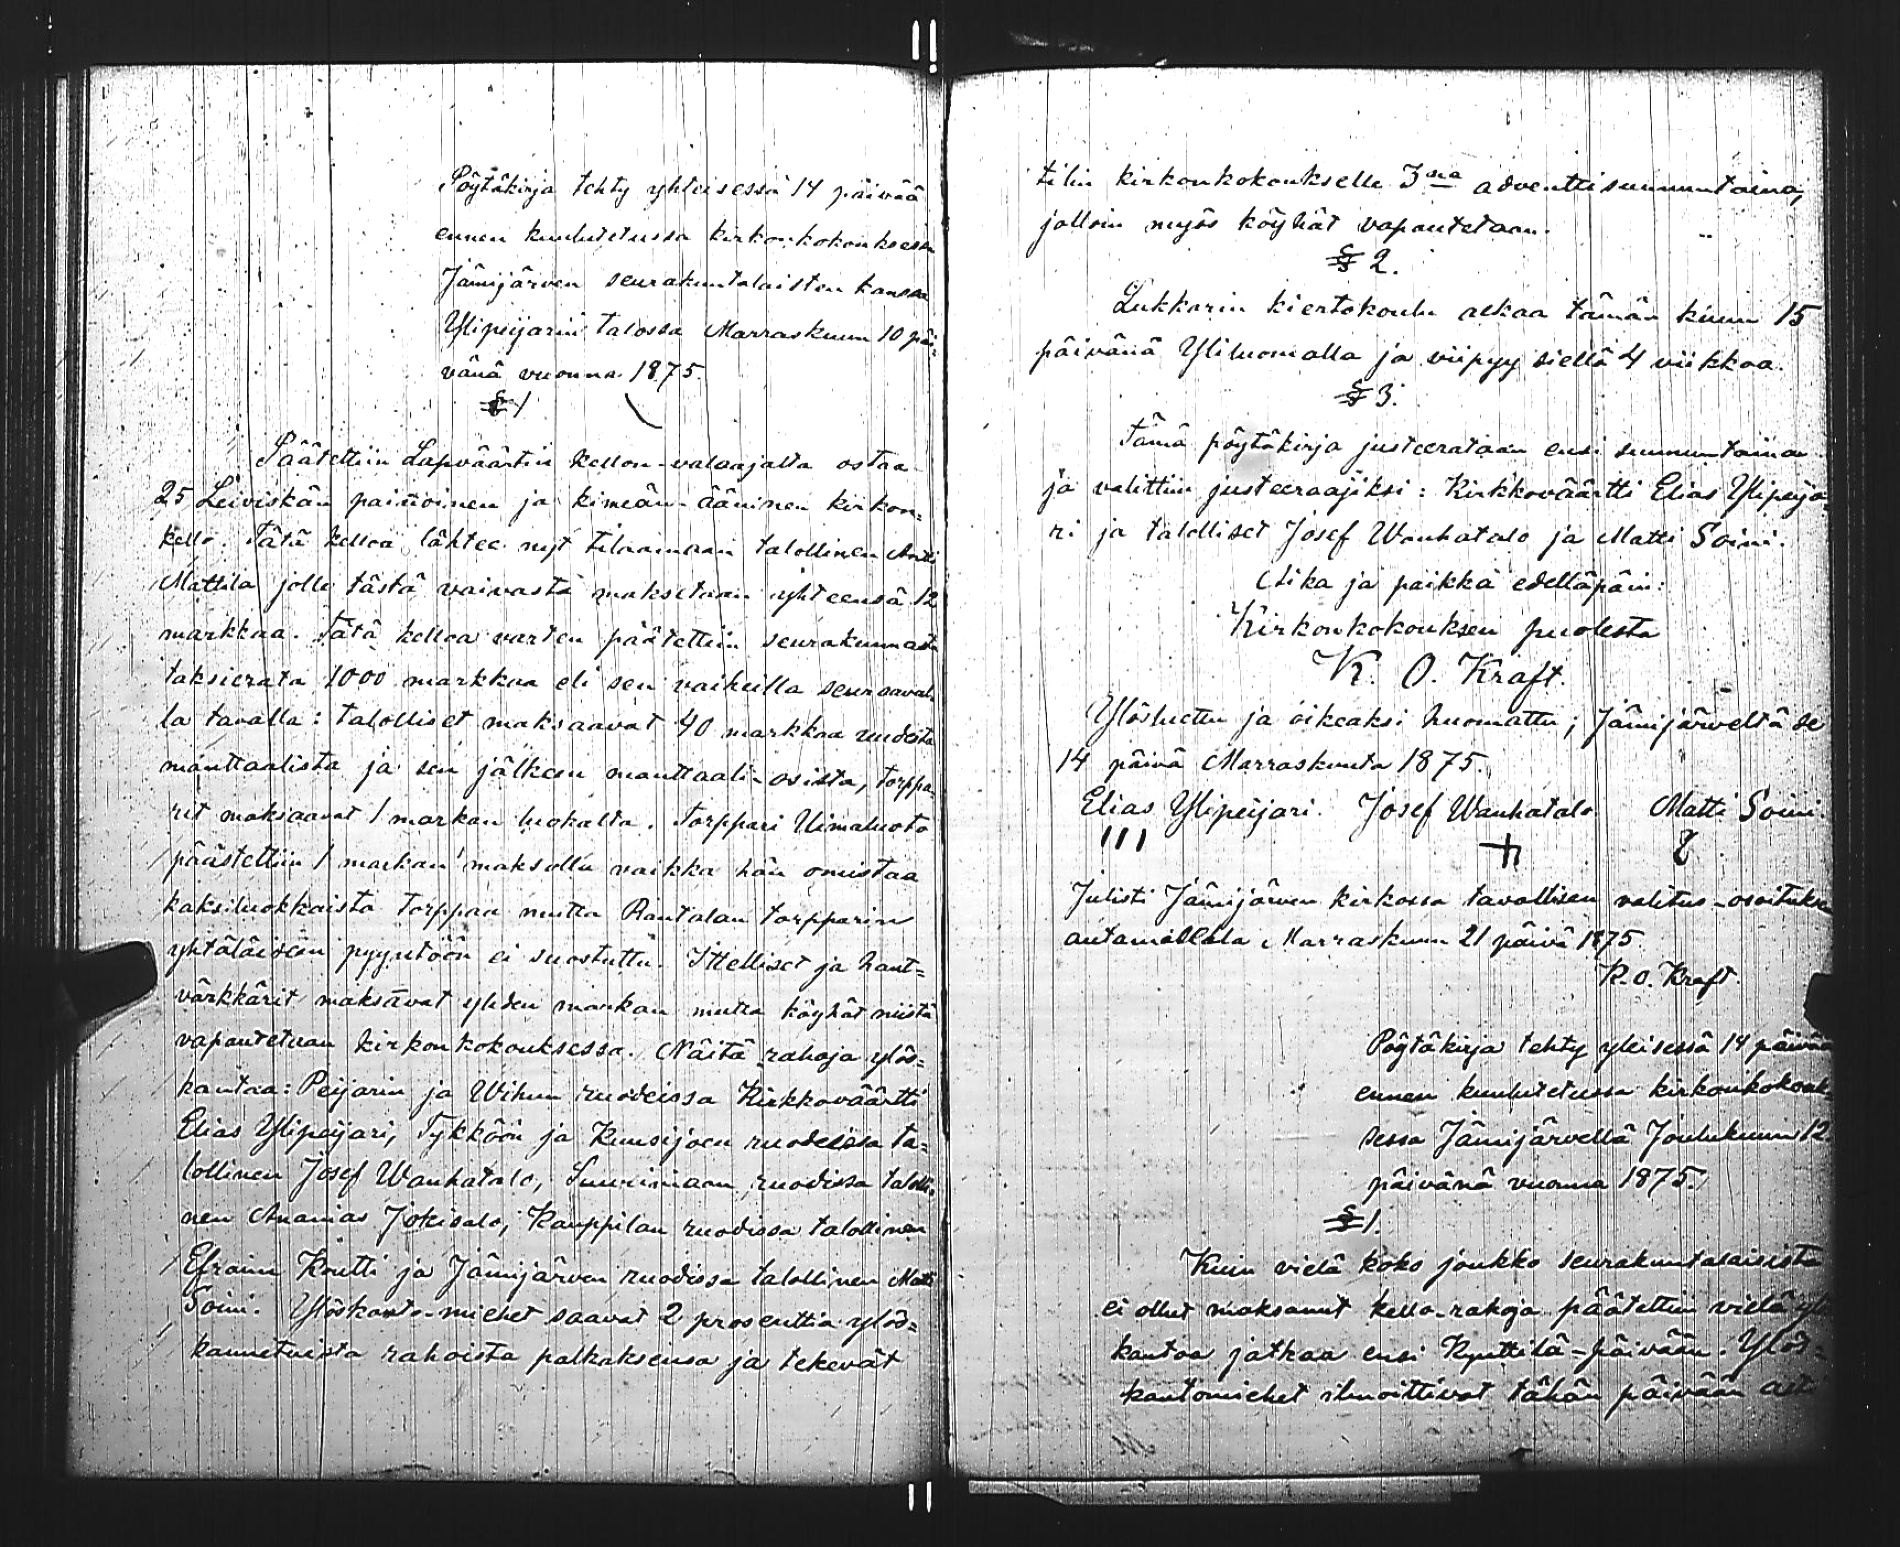 Pöytäkirja tehty yhteisessä 14 päivää
ennen kuulutetussa kirkonkokouksessa
Jämijärven seurakuntalaisten kanssa
Ylipeijarin talossa Marraskuun 10 päi-
vänä vuonna 1875.
§ 1
Päätettiin Lapväärtin kellon-valaajalta ostaa
25 Leiviskän painoinen ja kimeän-ääninen kirkon=
kello. Tätä kelloa lähtee nyt tilaamaan talollinen Antti
Mattila jolle tästä vaivasta maksetaan yhteensä 12
markkaa. Tätä kelloa varten päätettiin seurakunnasta
taksierata 1000 markkaa eli sen vaiheilla seuraaval-
la tavalla: talolliset maksaavat 40 markkaa uudesta
manttaalista ja sen jälkeen manttaali-osista, torppa-
rit maksaavat 1 markan luokalta. Torppari Uimaluoto
päästettiin 1 markan maksolla vaikka hän omistaa
kaksiluokkaista torppaa mutta Rantalan torpparin
yhtäläiseen pyyntöön ei suostuttu. Itelliset ja hant=
värkkärit maksavat yhden markan mutta köyhät niistä
vapautetaan kirkonkokouksessa. Näitä rahoja ylös=
kantaa: Peijarin ja Wihun ruodeissa Kirkkoväärtti
Elias Ylipeijari, Tykköön ja Kuusijoen ruodeissa ta=
lollinen Josef Wanhatalo, Suurimaan ruodissa talolli-
nen Ananias Jokisalo, Kauppilan ruodissa talollinen
Efraim Koutti ja Jämijärven ruodissa talollinen Matti
Soini. Ylöskanto-miehet saavat 2 prosenttia ylös=
kannetuista rahoista palkaksensa ja tekevät
tilin kirkonkokoukselle 3na adventtisunnuntaina,
jolloin myös köyhät vapautetaan.
§ 2.
Lukkarin kiertokoulu alkaa tämän kuun 15
päivänä Yliluomalla ja viipyy siellä 4 viikkoa.
§ 3.
Tämä pöytäkirja justeerataan ensi sunnuntaina
ja valittiin justeeraajiksi: Kirkkoväärtti Elias Ylipeija-
ri ja talolliset Josef Wanhatalo ja Matti Soini.
Aika ja paikka edelläpäin:
Kirkonkokouksen puolesta
K. O. Kraft.
Ylösluettu ja oikeaksi huomattu; Jämijärveltä se
14 päivä Marraskuuta 1875.
Elias Ylipeijari. Josef Wanhatalo Matti Soini.
Julisti Jämijärven kirkossa tavallisen valitus-osoituksen
antamisella Marraskuun 21 päivä 1875
K. O. Kraft.
Pöytäkirja tehty yleisessä 14 päivää
ennen kuulutetussa kirkonkokouk-
sessa Jämijärvellä Joulukuun 12
päivänä vuonna 1875.
§ 1.
Kuin vielä koko joukko seurakuntalaisista
ei ollut maksanut kello-rahoja päätettiin vielä ylös
kantoa jatkaa ensi Kynttilä-päivään. Ylös=
kantomiehet ilmoittivat tähän päivään asti